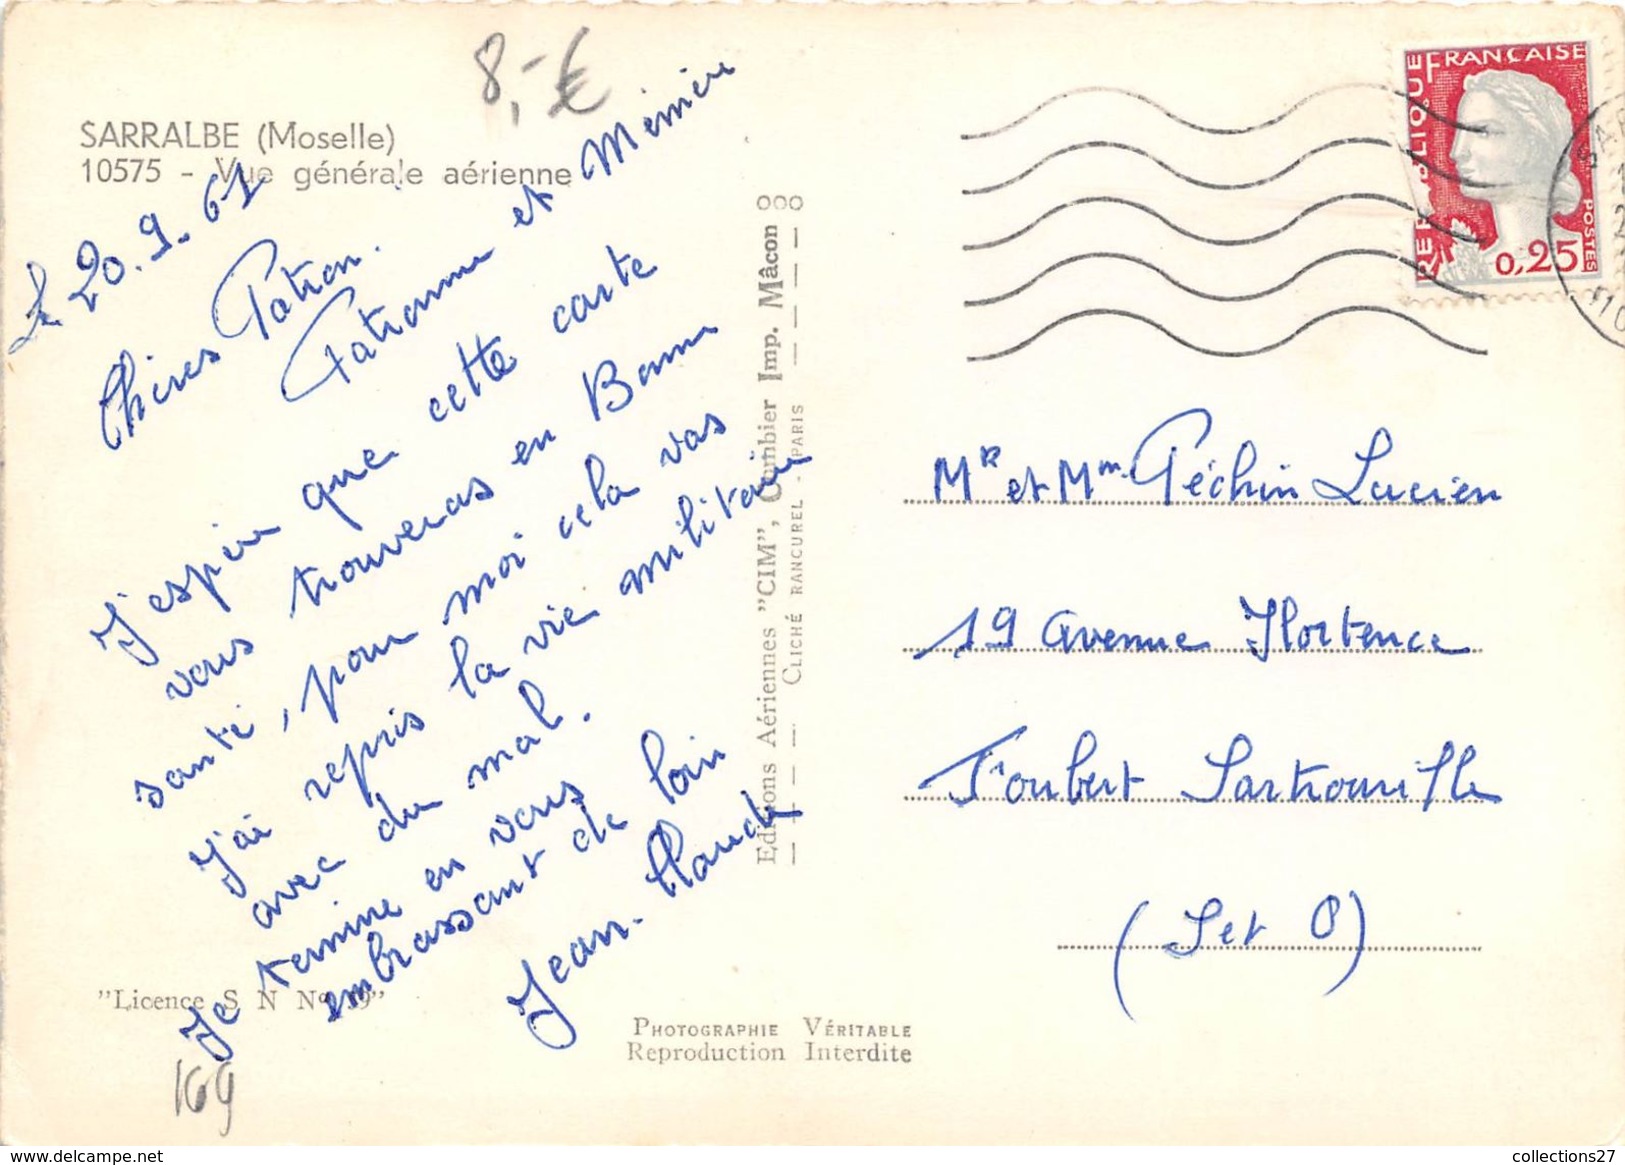 8,-€
SARRALBE (Moselle)
10575 - Vue générale aérienne
Le 20.9.61
Chères Patron.
Patronne et Mémère
J'espère que cette carte
vous trouveras en Bonne
santé, pour moi cela vas
J'ai repris la vie militaire
avec du mal.
Je termine en vous
embrassant de loin
Jean-Claude
"Licence S N N° 19"
169
Editions Aériennes "CIM", Combier Imp. Mâcon
CLICHÉ RANCUREL - PARIS
PHOTOGRAPHIE VÉRITABLE
Reproduction Interdite
REPUBLIQUE FRANCAISE
POSTES
0,25
Mr et Mm Péchin Lucien
19 avenue Hortence
Foubert Sartrouville
(Set O)
collections27